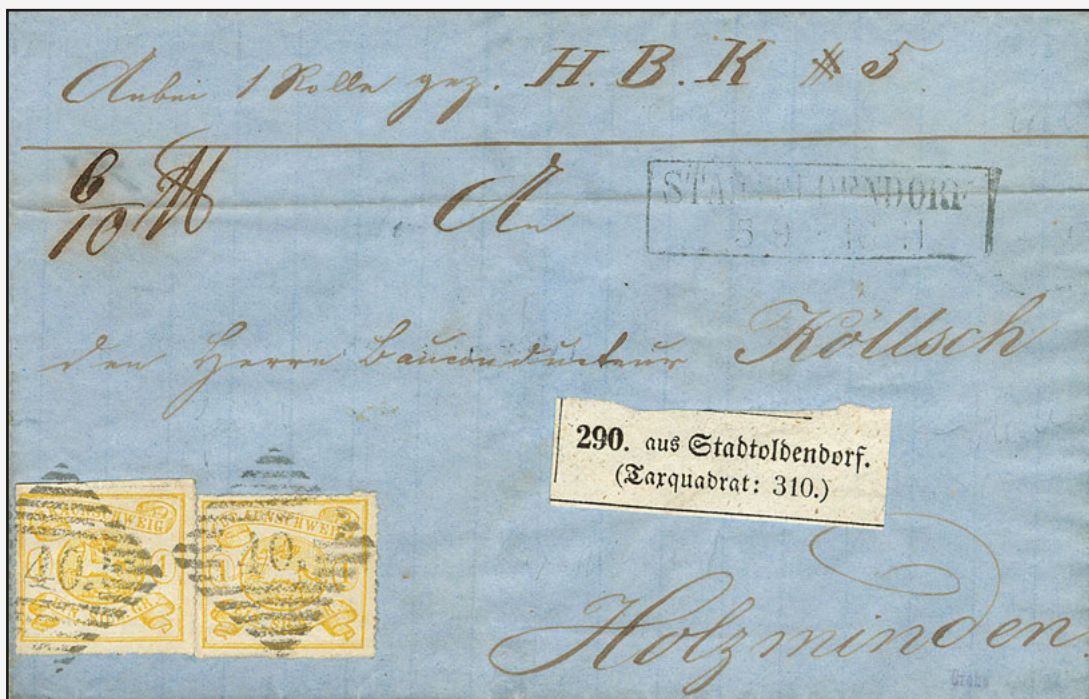 Anbei 1 Rolle gez. H. B. K # 5
6/10 ℔
An
STADTOLDENDORF
5 9
den Herrn Bauconducteur Köllsch
290. aus Stadtoldendorf.
(Taxquadrat: 310.)
BRAUNSCHWEIG
40.
1 1
BRAUNSCHWEIG
40.
1 1
Holzminden